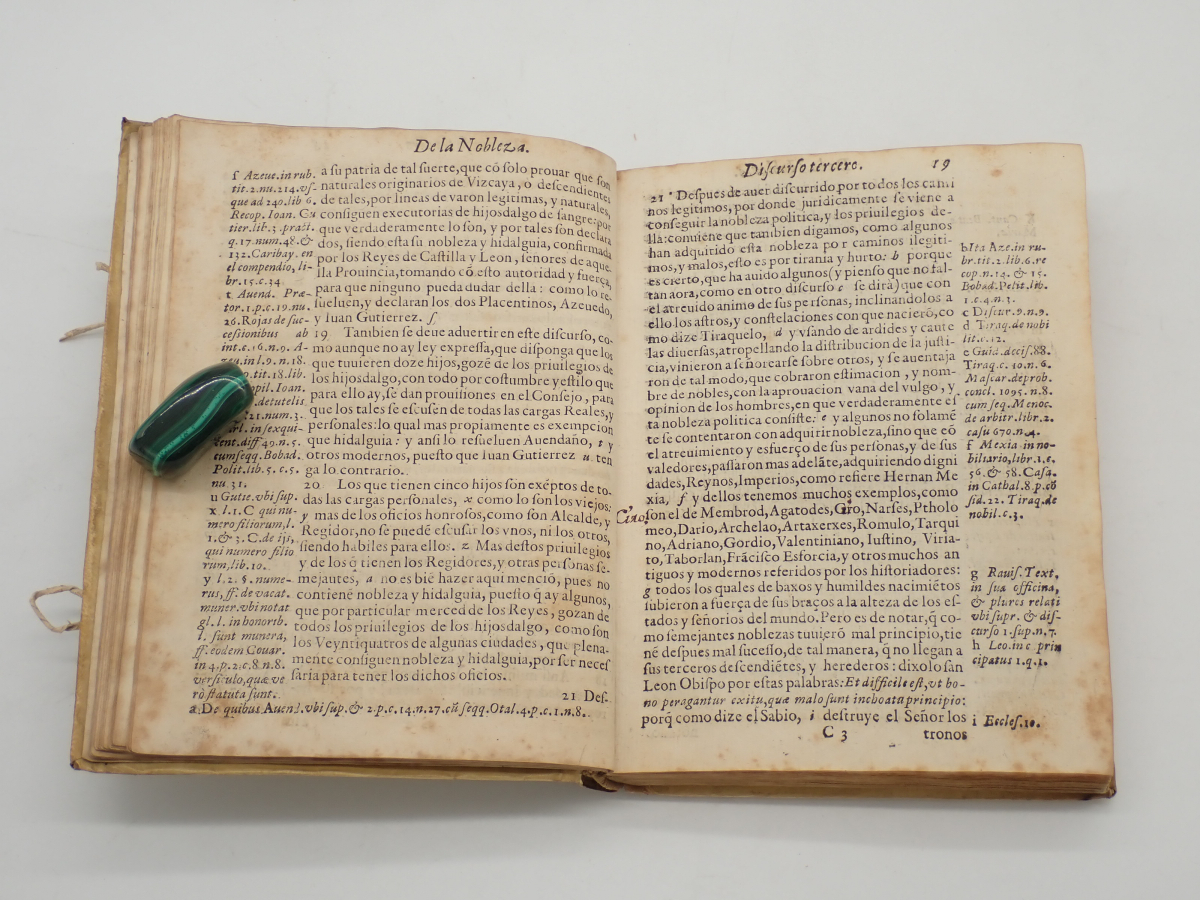 De la Nobleza.
a su patria de tal suerte, que cõ solo prouar que son
naturales originarios de Vizcaya, o descendientes
de tales, por lineas de varon legitimas, y naturales,
consiguen executorias de hijosdalgo de sangre: por
que verdaderamente lo son, y por tales son declara
dos, siendo esta su nobleza y hidalguia, confirmada
por los Reyes de Castilla y Leon, señores de aque-
lla Prouincia, tomando cõ esto autoridad y fuerça,
para que ninguno pueda dudar della: como lo re-
sueluen, y declaran los dos Placentinos, Azeuedo,
y Iuan Gutierrez. ſ
19 Tambien se deue aduertir en este discurso, co-
mo aunque no ay ley expressa, que disponga que los
que tuuieren doze hijos, gozẽ de los priuilegios de
los hijosdalgo, con todo por costumbre y estilo que
para ello ay, se dan prouisiones en el Consejo, para
que los tales se escusen de todas las cargas Reales, y
personales: lo qual mas propiamente es exempcion
que hidalguia: y ansi lo resueluen Auendaño, t y
otros modernos, puesto que Iuan Gutierrez u ten
ga lo contrario.
20 Los que tienen cinco hijos son exẽptos de to-
das las cargas personales, x como lo son los viejos:
y mas de los oficios honrosos, como son Alcalde, y
Regidor, no se puedẽ escusar los vnos, ni los otros,
siendo habiles para ellos. z Mas destos priuilegios
y de los q̃ tienen los Regidores, y otras personas se-
mejantes, a no es biẽ hazer aqui menciõ, pues no
contienẽ nobleza y hidalguia, puesto q̃ ay algunos,
que por particular merced de los Reyes, gozan de
todos los priuilegios de los hijosdalgo, como son
los Veyntiquatros de algunas ciudades, que plena-
mente consiguen nobleza y hidalguia, por ser neces
saria para tener los dichos oficios.
21 Des-
ſ Azeue. in rub.
tit. 2. nu. 214. vs-
que ad 240. lib 6.
Recop. Ioan. Gu
tier. lib. 3. pract.
q. 17. num. 48. &
132. Caribay. en
el compendio, li-
br. 15. c. 34
t Auend. Præ-
tor. 1. p. c. 19. nu.
26. Rojas de suc-
cessionibus ab
int. c. 16. n. 9. A-
zeu. in l. 9. n. 18.
tit. 18. lib.
opil. Ioan.
de tutelis
21. num. 3.
in sexqui-
cent. diff 49. n. 5.
cum seqq. Bobad.
Polit. lib. 5. c. 5.
nu 31.
u Gutie. vbi sup.
x l. 1. C qui nu-
mero filiorum, l.
1. & 3. C. de ijs,
qui numero filio
rum, lib. 10.
y l. 2. §. nume-
rus, ff. de vacat.
muner. vbi notat
gl. l. in honorib.
l. sunt munera,
ff. eodem Couar.
in 4. p. 2. c. 8 n. 8.
versiculo, quæ ve
rò statuta sunt.
a De quibus Auend. vbi sup. & 2. p. c. 14. n. 27. cũ seqq. Otal. 4. p. c. 1. n. 8.
Discurso tercero. 19
21 Despues de auer discurrido por todos los cami
nos legitimos, por donde juridicamente se viene a
conseguir la nobleza politica, y los priuilegios de-
lla: conuiene que tambien digamos, como algunos
han adquirido esta nobleza por caminos ilegiti-
mos, y malos, esto es por tirania y hurto: b porque
es cierto, que ha auido algunos (y pienso que no fal-
tan aora, como en otro discurso c se dirà) que con
el atreuido animo de sus personas, inclinandolos a
ello los astros, y constelaciones con que nacierõ, co
mo dize Tiraquelo, d y vsando de ardides y caute
las diuersas, atropellando la distribucion de la justi-
cia, vinieron a señorearse sobre otros, y se auentaja
ron de tal modo, que cobraron estimacion, y nom-
bre de nobles, con la aprouacion vana del vulgo, y
opinion de los hombres, en que verdaderamente es
ta nobleza politica consiste: e y algunos no solamẽ
te se contentaron con adquirir nobleza, sino que cõ
el atreuimiento y esfuerço de sus personas, y de sus
valedores, passaron mas adelãte, adquiriendo digni
dades, Reynos, Imperios, como refiere Hernan Me
xia, f y dellos tenemos muchos exemplos, como
son el de Membrod, Agatodes, Giro, Narses, Ptholo
meo, Dario, Archelao, Artaxerxes, Romulo, Tarqui
no, Adriano, Gordio, Valentiniano, Iustino, Viria-
to, Taborlan, Frãcisco Esforcia, y otros muchos an
tiguos y modernos referidos por los historiadores:
g todos los quales de baxos y humildes nacimiẽtos
subieron a fuerça de sus braços a la alteza de los es-
tados y señorios del mundo. Pero es de notar, q̃ co-
mo semejantes noblezas tuuierõ mal principio, tie
nẽ despues mal sucesso, de tal manera, q̃ no llegan a
sus terceros descendiẽtes, y herederos: dixolo san
Leon Obispo por estas palabras: Et difficile est, vt bo-
no peragantur exitu, quæ malo sunt inchoata principio:
porq̃ como dize el Sabio, i destruye el Señor los
C 3 tronos
Ciro.
b Ita Aze. in ru-
br. tit. 2. lib. 6. re
cop. n. 14. & 15.
Bobad. Polit. lib.
1. c. 4. n. 3.
c Discur. 9. n. 9.
d Tiraq. de nobi
lit. c. 12.
e Guia. decis. 88.
Tiraq. c. 10. n. 6.
Mascar. de prob.
concl. 1095. n. 8.
cum seq. Menoc.
de arbitr. libr. 2.
casu 670. n. 4.
f Mexia in no-
biliario, libr. 1. c.
56. & 58. Casa.
in Cathal. 8. p. cõ
sid. 22. Tiraq. de
nobil. c. 3.
g Rauis. Text,
in sua officina,
& plures relati
vbi supr. & dis-
curso 1. sup. n. 7.
h Leo. in c. prin
cipatus 1. q. 1.
i Eccles. 10.